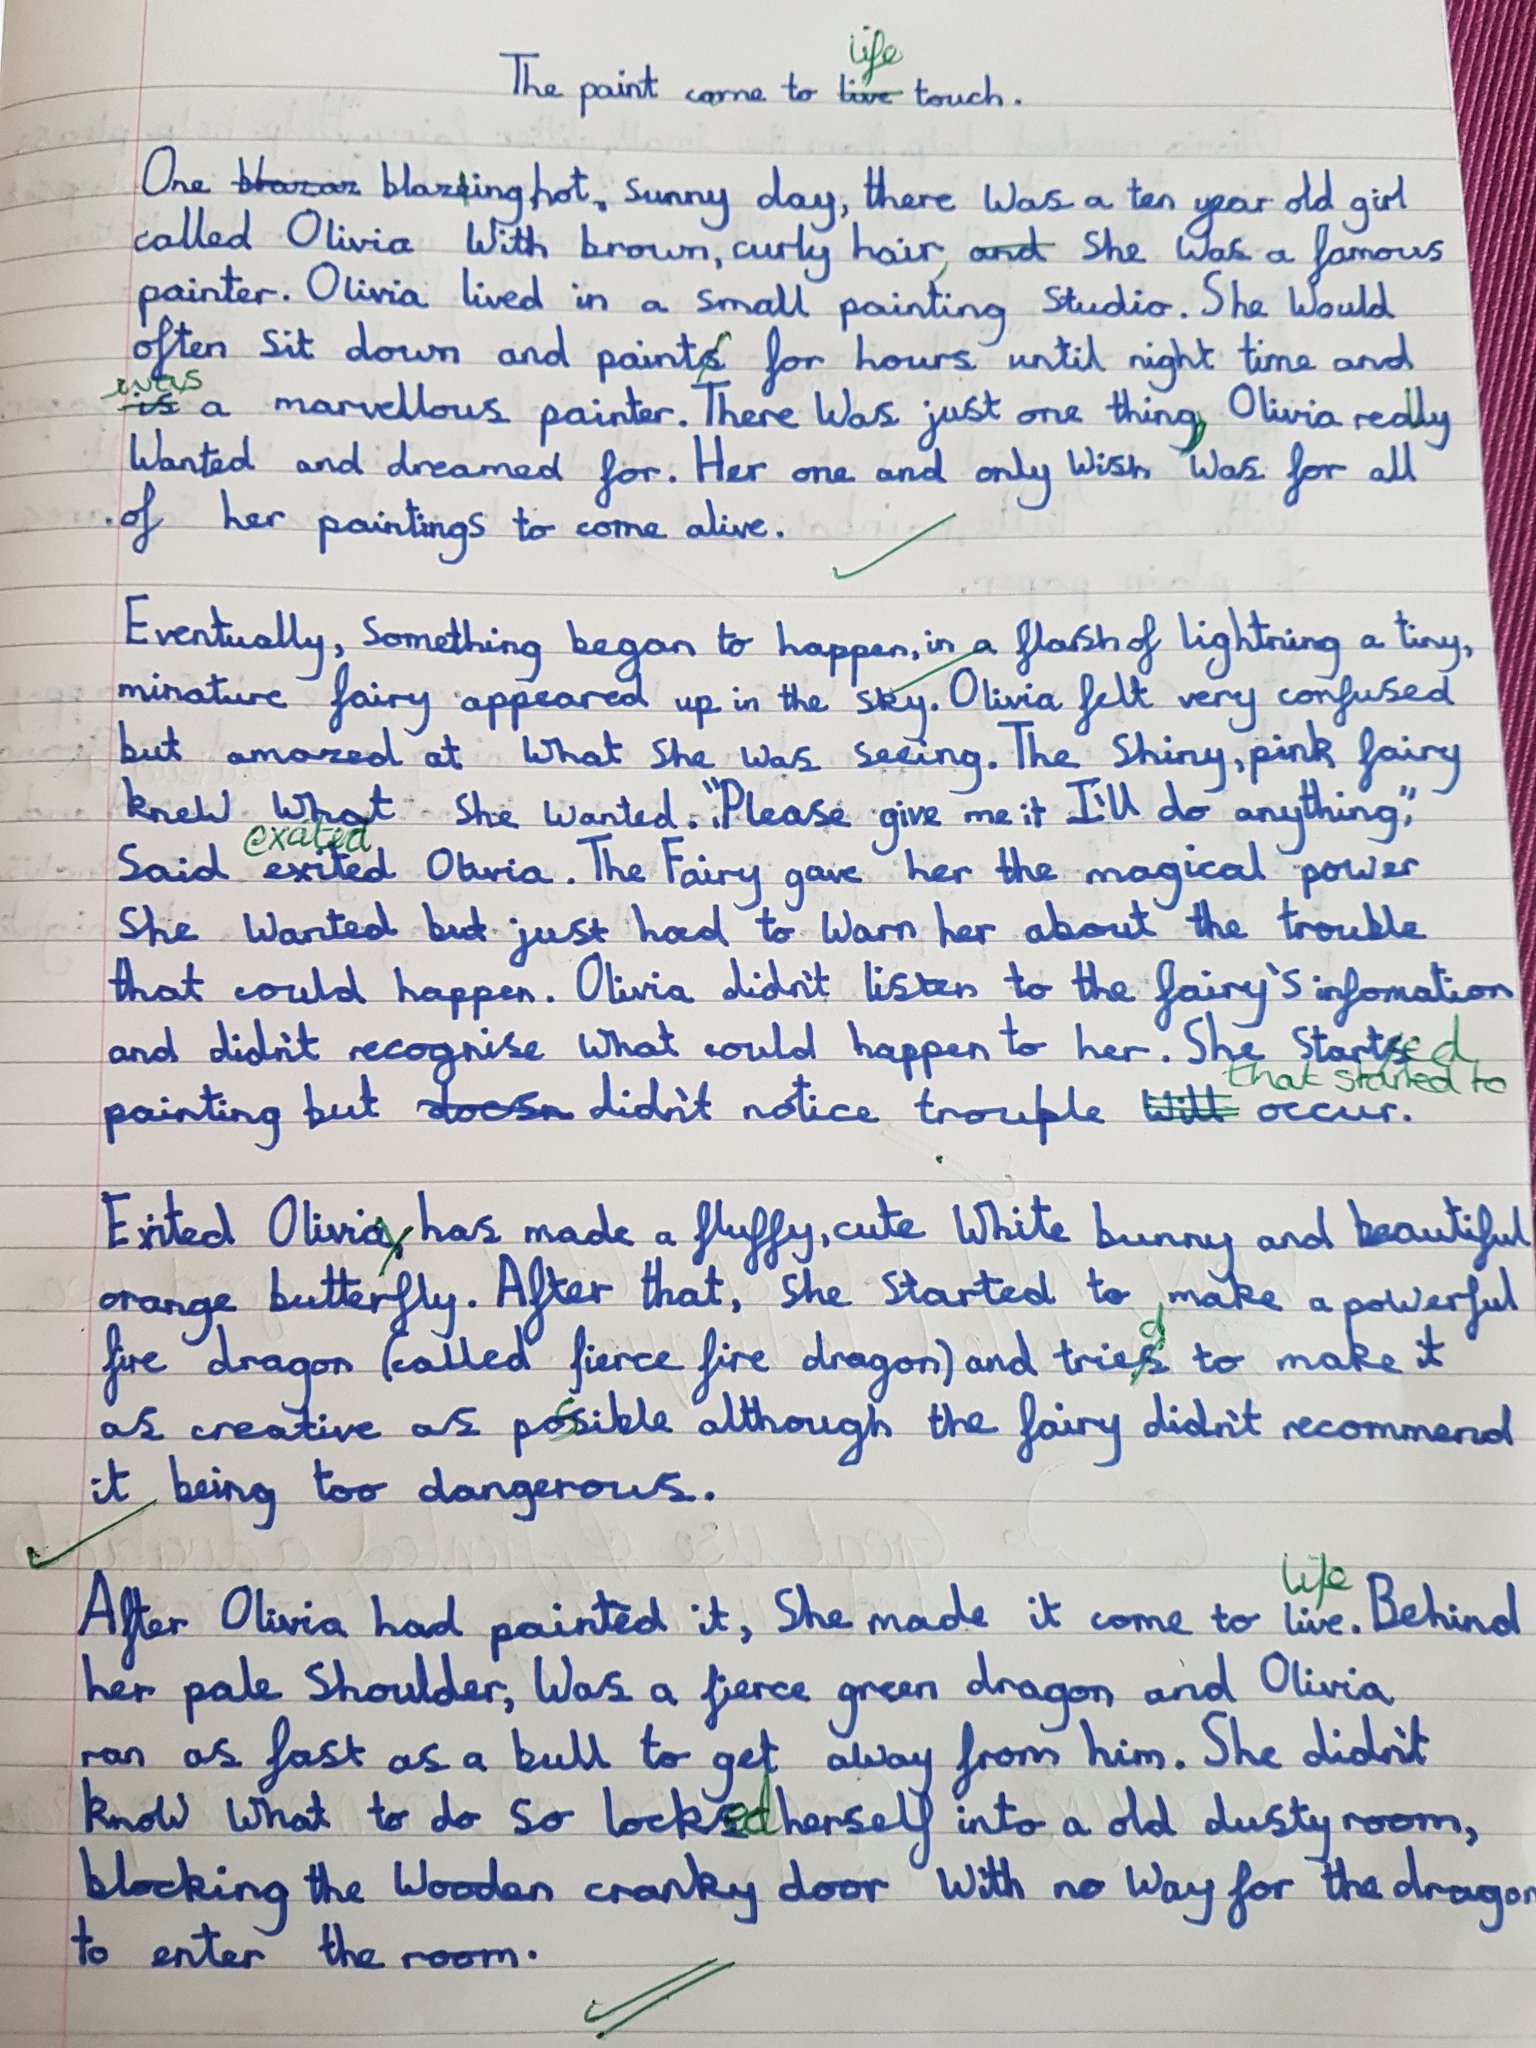 life
The paint come to live touch.
One blazing hot, sunny day, there was a ten year old girl
called Olivia with brown, curly hair, and she was a famous
painter. Olivia lived in a small painting studio. She would
often sit down and paints for hours until night time and
was
is a marvellous painter. There was just one thing, Olivia really
wanted and dreamed for. Her one and only wish was for all
of her paintings to come alive.
Eventually, something began to happen, in a flash of lightning a tiny,
minature fairy appeared up in the sky. Olivia felt very confused
but amazed at what she was seeing. The shiny, pink fairy
knew what she wanted. "Please give me it I'll do anything,"
exated
said exited Olivia. The Fairy gave her the magical power
she wanted but just had to warn her about the trouble
that could happen. Olivia didn't listen to the fairy's infomation
and didn't recognise what could happen to her. She started
that started to
painting but doesn didn't notice trouple will occur.
Exited Olivia, has made a fluffy, cute white bunny and beautiful
orange butterfly. After that, she started to make a powerful
d
fire dragon (called fierce fire dragon) and tries to make it
as creative as possible although the fairy didn't recommend
it being too dangerous.
life
After Olivia had painted it, she made it come to live. Behind
her pale shoulder, was a fierce green dragon and Olivia
ran as fast as a bull to get away from him. She didn't
know what to do so locked herself into a old dusty room,
blocking the wooden cranky door with no way for the dragon
to enter the room.